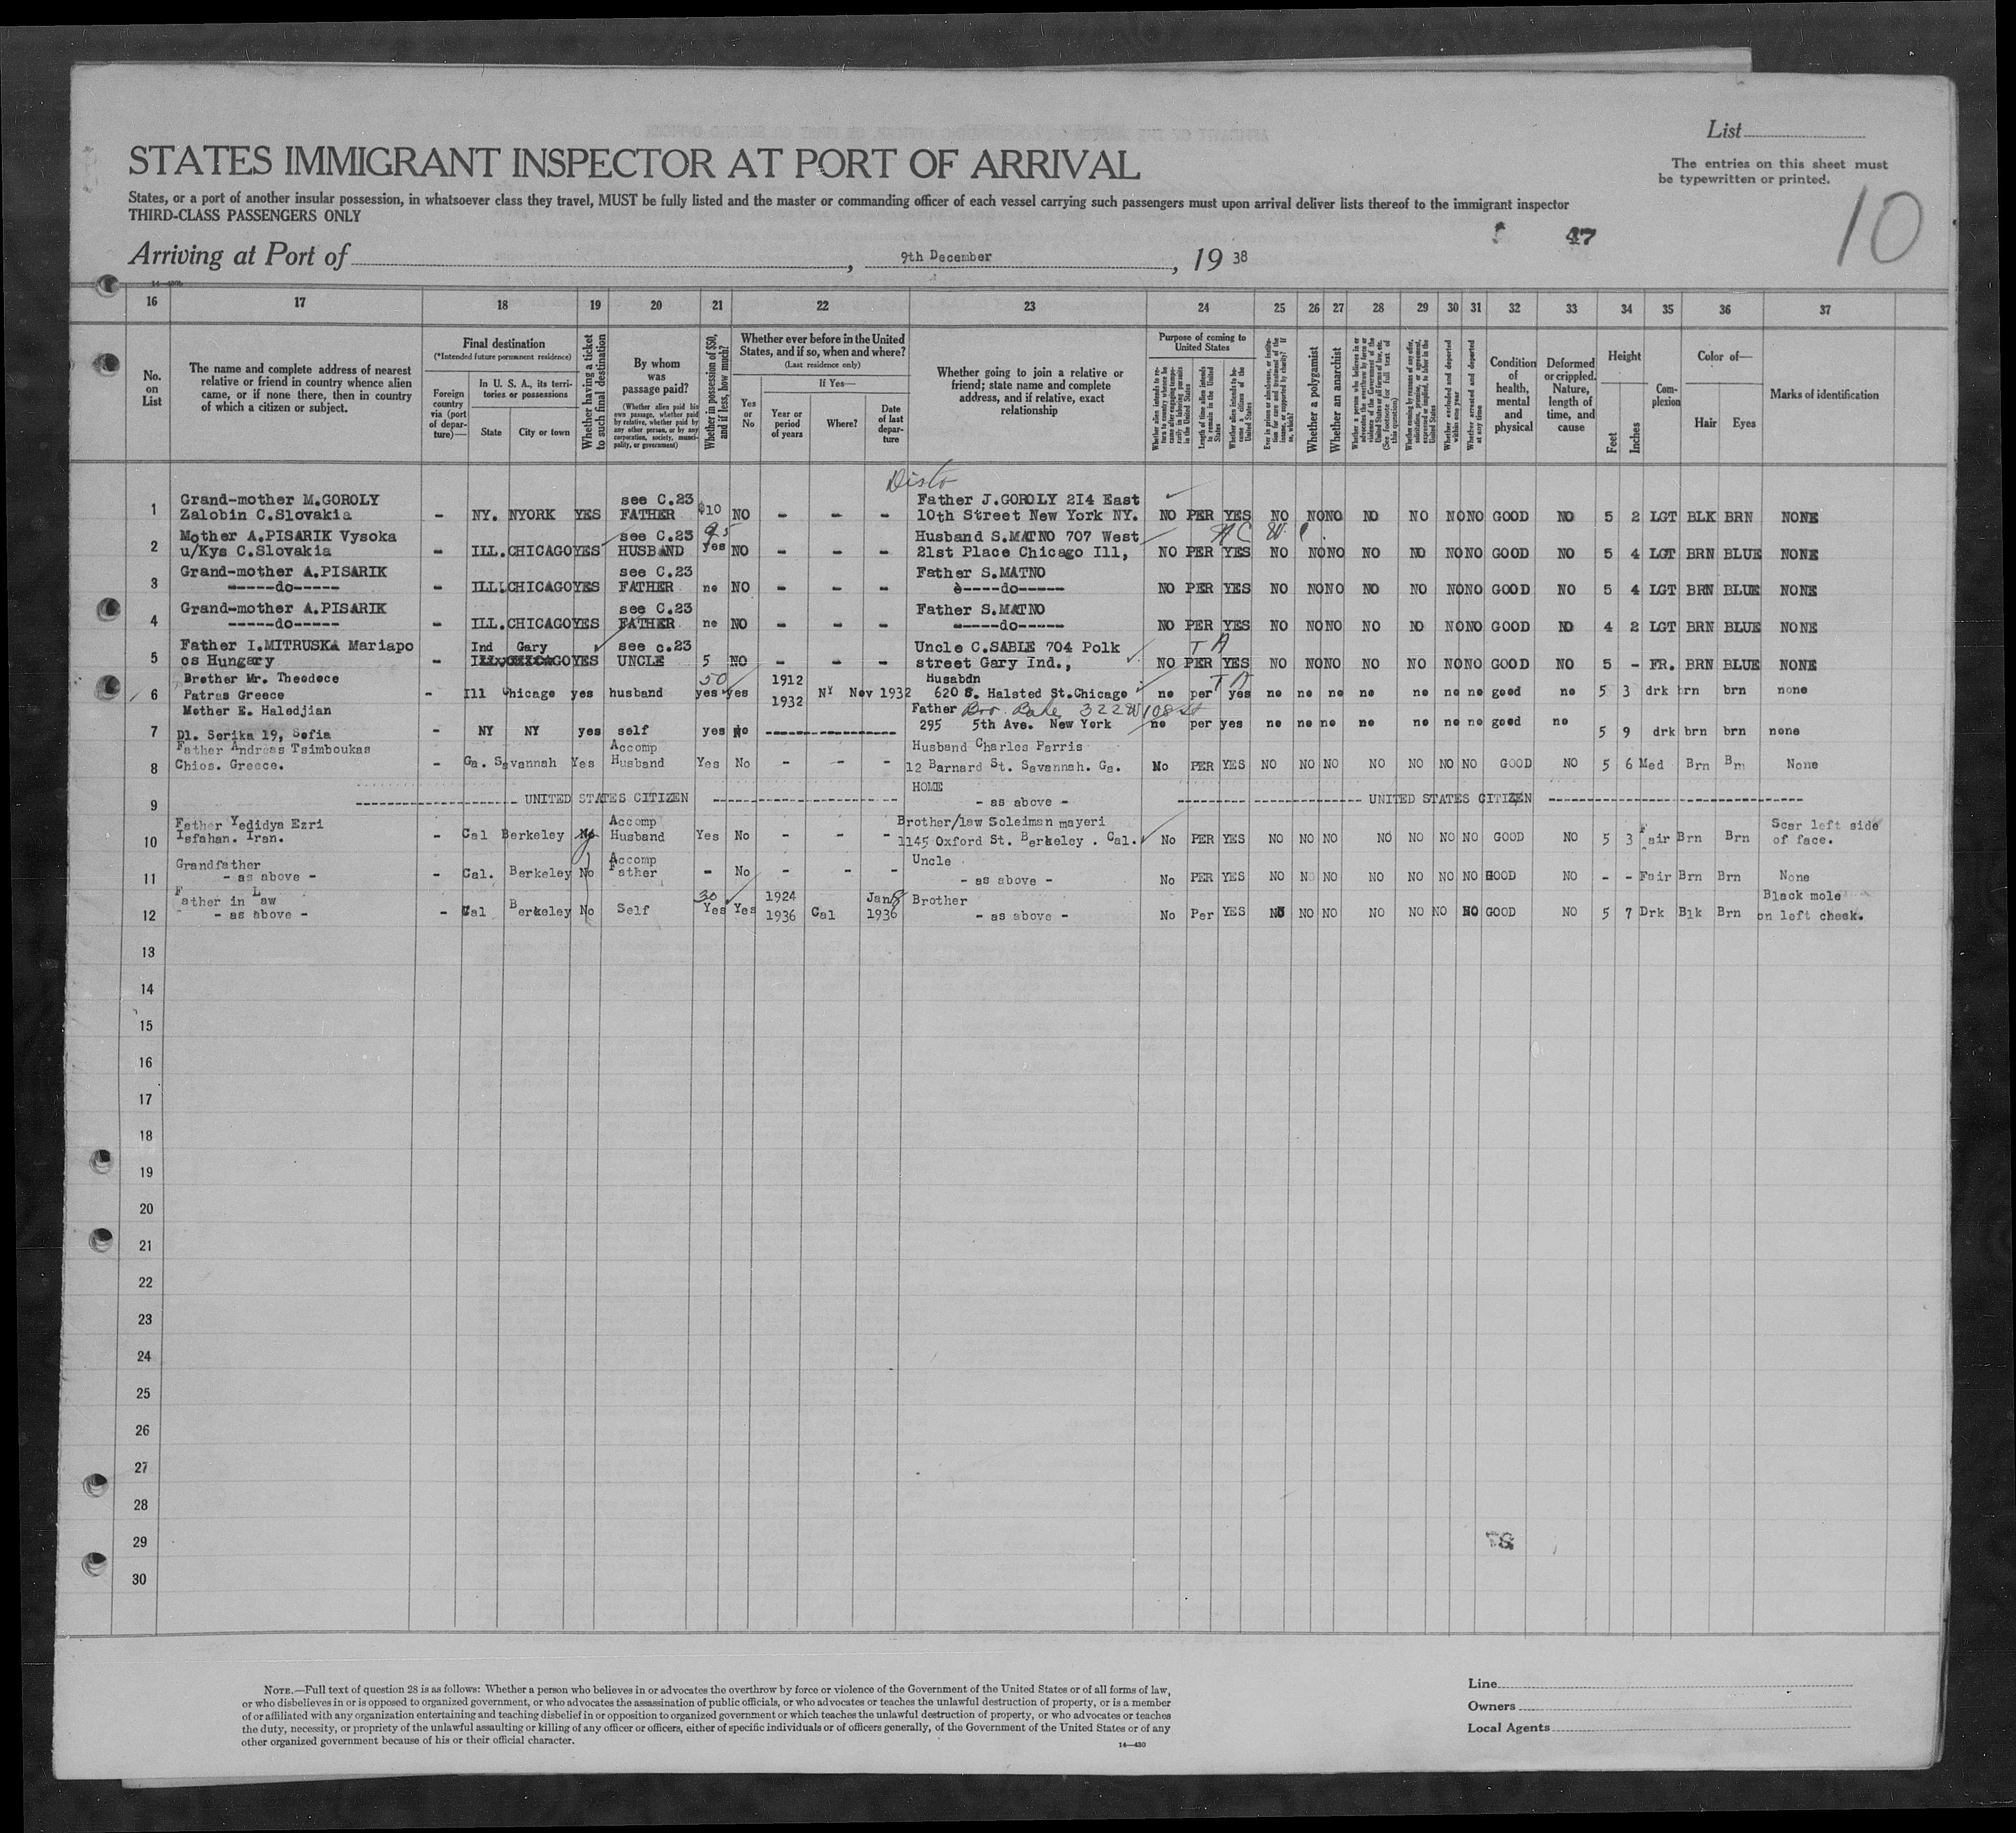 List
The entries on this sheet must
be typewritten or printed.
10
STATES IMMIGRANT INSPECTOR AT PORT OF ARRIVAL
States, or a port of another insular possession, in whatsoever class they travel, MUST be fully listed and the master or commanding officer of each vessel carrying such passengers must upon arrival deliver lists thereof to the immigrant inspector
THIRD-CLASS PASSENGERS ONLY
47
Arriving at Port of , 9th December , 19 38
16 17 18 19 20 21 22 23 24 25 26 27 28 29 30 31 32 33 34 35 36 37
No. on List
The name and complete address of nearest relative or friend in country whence alien came, or if none there, then in country of which a citizen or subject.
Final destination
(*Intended future permanent residence)
Foreign country via (port of departure)—
In U. S. A., its territories or possessions
State City or town
Whether having a ticket to such final destination
By whom was passage paid?
(Whether alien paid his own passage, whether paid by relative, whether paid by any other person, or by any corporation, society, municipality, or government)
Whether in possession of $50, and if less, how much?
Whether ever before in the United States, and if so, when and where?
(Last residence only)
Yes or No
If Yes—
Year or period of years
Where?
Date of last departure
Whether going to join a relative or friend; state name and complete address, and if relative, exact relationship
Purpose of coming to United States
Length of time alien intends to remain in the United States
Whether alien intends to become a citizen of the United States
Whether a polygamist
Whether an anarchist
Whether excluded and deported within one year
Whether arrested and deported at any time
Condition of health, mental and physical
Deformed or crippled. Nature, length of time, and cause
Height
Feet Inches
Complexion
Color of—
Hair Eyes
Marks of identification
Grand-mother M.GOROLY see C.23 Father J.GOROLY 214 East
1 Zalobin C.Slovakia - NY. NYORK YES FATHER $10 NO - - - 10th Street New York NY. NO PER YES NO NO NO NO NO NO NO GOOD NO 5 2 LGT BLK BRN NONE
Mother A.PISARIK Vysoka see C.23 Husband S.MATNO 707 West
2 u/Kys C.Slovakia - ILL. CHICAGO YES HUSBAND yes NO - - - 21st Place Chicago Ill, NO PER YES NO NO NO NO NO NO NO GOOD NO 5 4 LGT BRN BLUE NONE
Grand-mother A.PISARIK see C.23 Father S.MATNO
3 -----do----- - ILL. CHICAGO YES FATHER no NO - - - -----do----- NO PER YES NO NO NO NO NO NO NO GOOD NO 5 4 LGT BRN BLUE NONE
Grand-mother A.PISARIK see C.23 Father S.MATNO
4 -----do----- - ILL. CHICAGO YES FATHER no NO - - - -----do----- NO PER YES NO NO NO NO NO NO NO GOOD NO 4 2 LGT BRN BLUE NONE
Father I.MITRUSKA Mariapo Ind Gary see c.23 Uncle C.SABLE 704 Polk T A
5 cs Hungary - YES UNCLE 5 NO - - - street Gary Ind., NO PER YES NO NO NO NO NO NO NO GOOD NO 5 - FR. BRN BLUE NONE
Brother Mr. Theodoce 50 1912 Husabdn T A
6 Patras Greece - Ill Chicago yes husband yes yes 1932 NY Nov 1932 620 S. Halsted St.Chicago no per yes no no no no no no no good no 5 3 drk brn brn none
Mother E. Haledjian Father 322 W 108 St
7 Dl. Serika 19, Sofia - NY NY yes self yes No ---------------- 295 5th Ave. New York no per yes no no no no no no no good no 5 9 drk brn brn none
Father Andreas Tsimboukas Accomp Husband Charles Perris
8 Chios. Greece. - Ga. Savannah Yes Husband Yes No - - - 12 Barnard St. Savannah. Ga. No PER YES NO NO NO NO NO NO NO GOOD NO 5 6 Med Brn Brn None
HOME
9 ---------------- UNITED STATES CITIZEN ---------------- - as above - ---------------- UNITED STATES CITIZEN ----------------
Father Yedidya Ezri Accomp Brother/law Soleiman mayeri Scar left side
10 Isfahan. Iran. - Cal Berkeley No Husband Yes No - - - 1145 Oxford St. Berkeley . Cal. No PER YES NO NO NO NO NO NO NO GOOD NO 5 3 Fair Brn Brn of face.
Grandfather Accomp Uncle
11 - as above - - Cal. Berkeley No Father - No - - - - as above - No PER YES NO NO NO NO NO NO NO GOOD NO - - Fair Brn Brn None
Father in Law 30 1924 Jan 8 Brother Black mole
12 - as above - - Cal Berkeley No Self Yes Yes 1936 Cal 1936 - as above - No Per YES NO NO NO NO NO NO NO GOOD NO 5 7 Drk Blk Brn on left cheek.
13
14
15
16
17
18
19
20
21
22
23
24
25
26
27
28
29
30
NOTE.—Full text of question 28 is as follows: Whether a person who believes in or advocates the overthrow by force or violence of the Government of the United States or of all forms of law,
or who disbelieves in or is opposed to organized government, or who advocates the assassination of public officials, or who advocates or teaches the unlawful destruction of property, or is a member
of or affiliated with any organization entertaining and teaching disbelief in or opposition to organized government or which teaches the unlawful destruction of property, or who advocates or teaches
the duty, necessity, or propriety of the unlawful assaulting or killing of any officer or officers, either of specific individuals or of officers generally, of the Government of the United States or of any
other organized government because of his or their official character.
14—430
Line
Owners
Local Agents